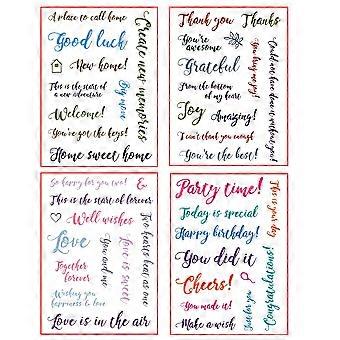 A place to call home
Good luck
New home!
This is the start of
a new adventure
Welcome!
You've got the keys!
Home sweet home
Big move
Create new memories
Thank you
Thanks
You're
awesome
Grateful
From the bottom
of my heart
Joy
Amazing!
I can't thank you enough
You're the best!
You bring me joy!
Could not have done it without you!
So happy for you two!
&
This is the start of forever
Well wishes
Love
Together
forever
Wishing you
happiness & love
Love is in the air
You and me
Love is sweet
Two hearts beat as one
Party time!
Today is special
Happy birthday!
You did it
Cheers!
You made it!
Make a wish
Just for you
Congratulations!
This is your day